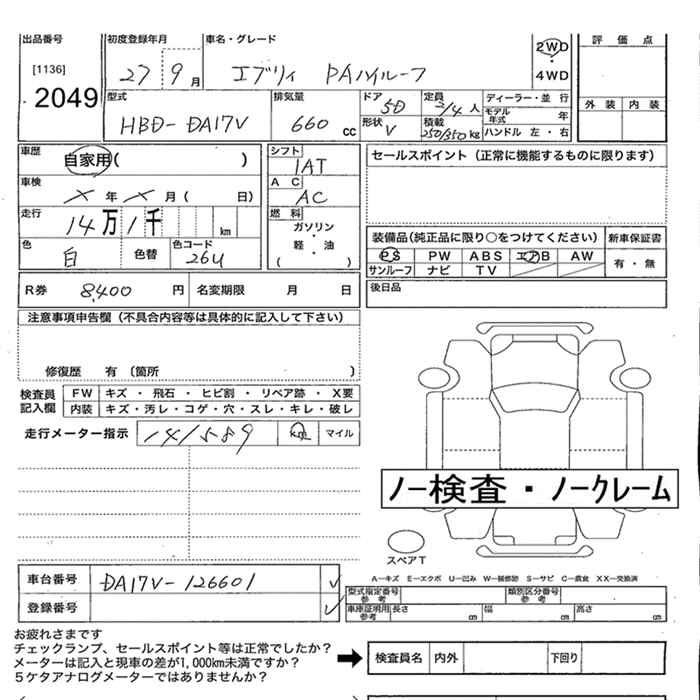 出品番号 初度登録年月 車名・グレード 2WD 4WD 評価点
[1136] 2049 27 9月 エブリィ PAハイルーフ
外装 内装
型式 HBD-DA17V 排気量 660 cc ドア 5D 定員 2/4人 ディーラー・並行
形状 V 積載 250/350kg モデル年式 年 ハンドル 左・右
車歴 自家用( ) シフト 1AT セールスポイント(正常に機能するものに限ります)
車検 X年 X月( 日) AC AC
走行 14万1千 km 燃料 ガソリン・軽・油 ( )
色 白 色替 色コード 26U
装備品(純正品に限り○をつけてください) 新車保証書
PS PW ABS エアB AW 有・無
サンルーフ ナビ TV
R券 8,400円 名変期限 月 日 後日品
注意事項申告欄(不具合内容等は具体的に記入して下さい)
修復歴 有 (箇所 )
検査員記入欄 FW キズ・飛石・ヒビ割・リペア跡・X要
内装 キズ・汚レ・コゲ・穴・スレ・キレ・破レ
走行メーター指示 141589 km マイル
ノー検査・ノークレーム
スペアT
A-キズ E-エクボ U-凹み W-補修跡 S-サビ C-腐食 XX-交換済
車台番号 DA17V-126601
型式指定番号 参考 類別区分番号 参考
登録番号
車庫証明用 参考 長さ cm 幅 cm 高さ cm
お疲れさまです
チェックランプ、セールスポイント等は正常でしたか?
メーターは記入と現車の差が1,000km未満ですか?
5ケタアナログメーターではありませんか?
検査員名 内外 下回り